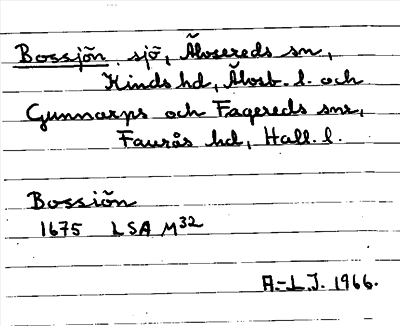 Bossjön, sjö, Älvsereds sn,
Kinds hd, Älvsb. l. och
Gunnarps och Fagereds snr,
Faurås hd, Hall. l.
Bossiön
1675 LSA M32
A.-L.J. 1966.